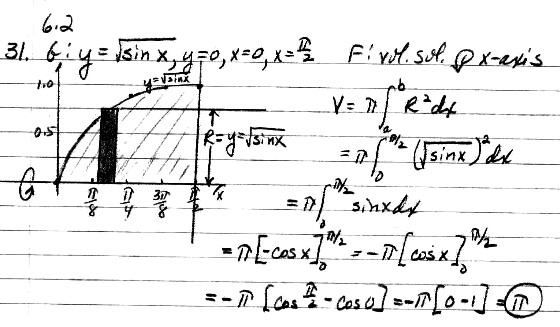 6.2
31. G: y = √sin x, y=0, x=0, x=π/2 F: vol. sol. @ x-axis
y=√sin x
1.0
0.5
R=y=√sinx
G
π/8 π/4 3π/8 π/2 x
V = π∫_a^b R²dx
= π∫_0^{π/2} (√sinx)² dx
= π∫_0^{π/2} sinxdx
= π[-cosx]_0^{π/2} = -π[cosx]_0^{π/2}
= -π [cos π/2 - cos0] = -π[0-1] = π